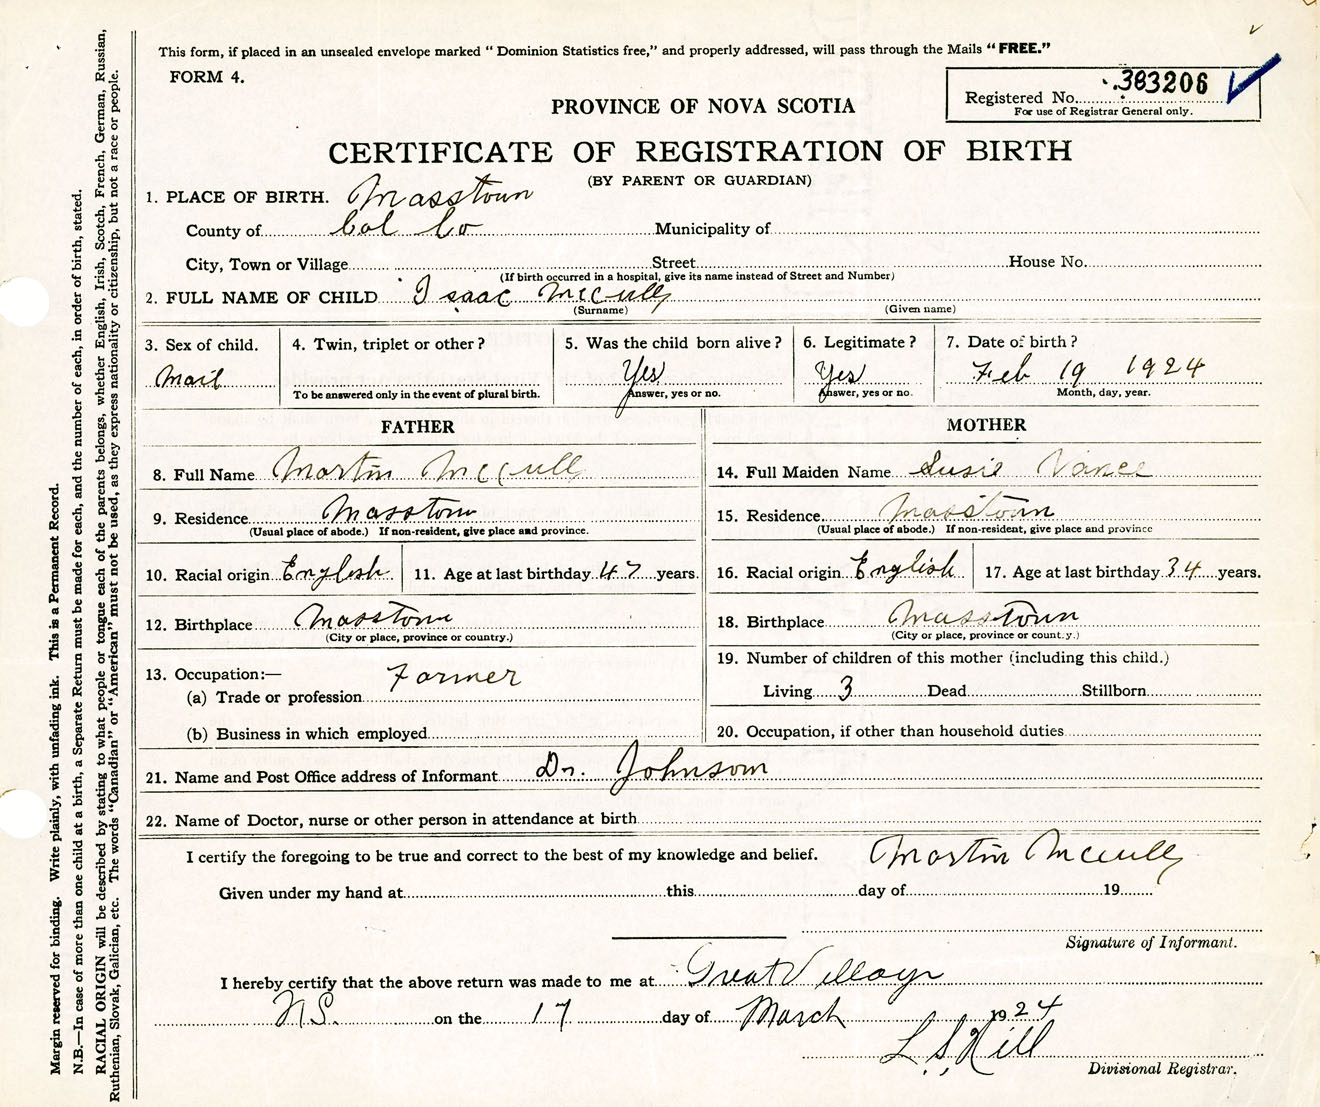 This form, if placed in an unsealed envelope marked "Dominion Statistics free," and properly addressed, will pass through the Mails "FREE."
FORM 4.
Registered No. 383206
For use of Registrar General only.
PROVINCE OF NOVA SCOTIA
CERTIFICATE OF REGISTRATION OF BIRTH
(BY PARENT OR GUARDIAN)
1. PLACE OF BIRTH. Masstown
County of Col Co Municipality of
City, Town or Village Street House No.
(If birth occurred in a hospital, give its name instead of Street and Number)
2. FULL NAME OF CHILD Isaac McCully
(Surname) (Given name)
3. Sex of child. 4. Twin, triplet or other? 5. Was the child born alive? 6. Legitimate? 7. Date of birth?
Mail Yes Yes Feb 19 1924
To be answered only in the event of plural birth. Answer, yes or no. Answer, yes or no. Month, day, year.
FATHER
8. Full Name Martin McCully
9. Residence Masstown
(Usual place of abode.) If non-resident, give place and province.
10. Racial origin English 11. Age at last birthday 47 years.
12. Birthplace Masstown
(City or place, province or country.)
13. Occupation:— Farmer
(a) Trade or profession
(b) Business in which employed
MOTHER
14. Full Maiden Name Susie Vance
15. Residence Masstown
(Usual place of abode.) If non-resident, give place and province
16. Racial origin English 17. Age at last birthday 34 years.
18. Birthplace Masstown
(City or place, province or country.)
19. Number of children of this mother (including this child.)
Living 3 Dead Stillborn
20. Occupation, if other than household duties
21. Name and Post Office address of Informant Dr. Johnson
22. Name of Doctor, nurse or other person in attendance at birth
I certify the foregoing to be true and correct to the best of my knowledge and belief. Martin McCully
Given under my hand at this day of 19
Signature of Informant.
I hereby certify that the above return was made to me at Great Village
N.S. on the 17 day of March 1924
L. S. Hill
Divisional Registrar.
Margin reserved for binding. Write plainly, with unfading ink. This is a Permanent Record.
N.B.—In case of more than one child at a birth, a Separate Return must be made for each, and the number of each, in order of birth, stated.
RACIAL ORIGIN will be described by stating to what people or tongue each of the parents belongs, whether English, Irish, Scotch, French, German, Russian,
Ruthenian, Slovak, Galician, etc. The words "Canadian" or "American" must not be used, as they express nationality or citizenship, but not a race or people.